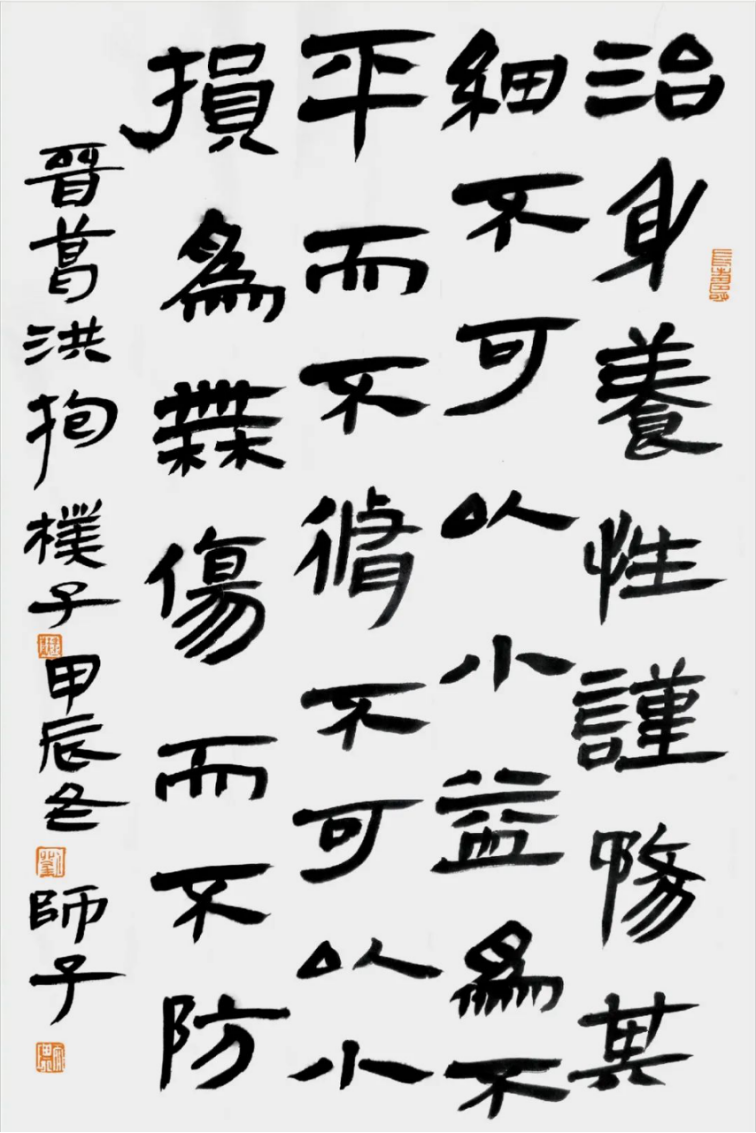 治身養性謹務其
細不可以小益為不
平而不脩不可以小
損為無傷而不防
晉葛洪抱樸子甲辰冬師子